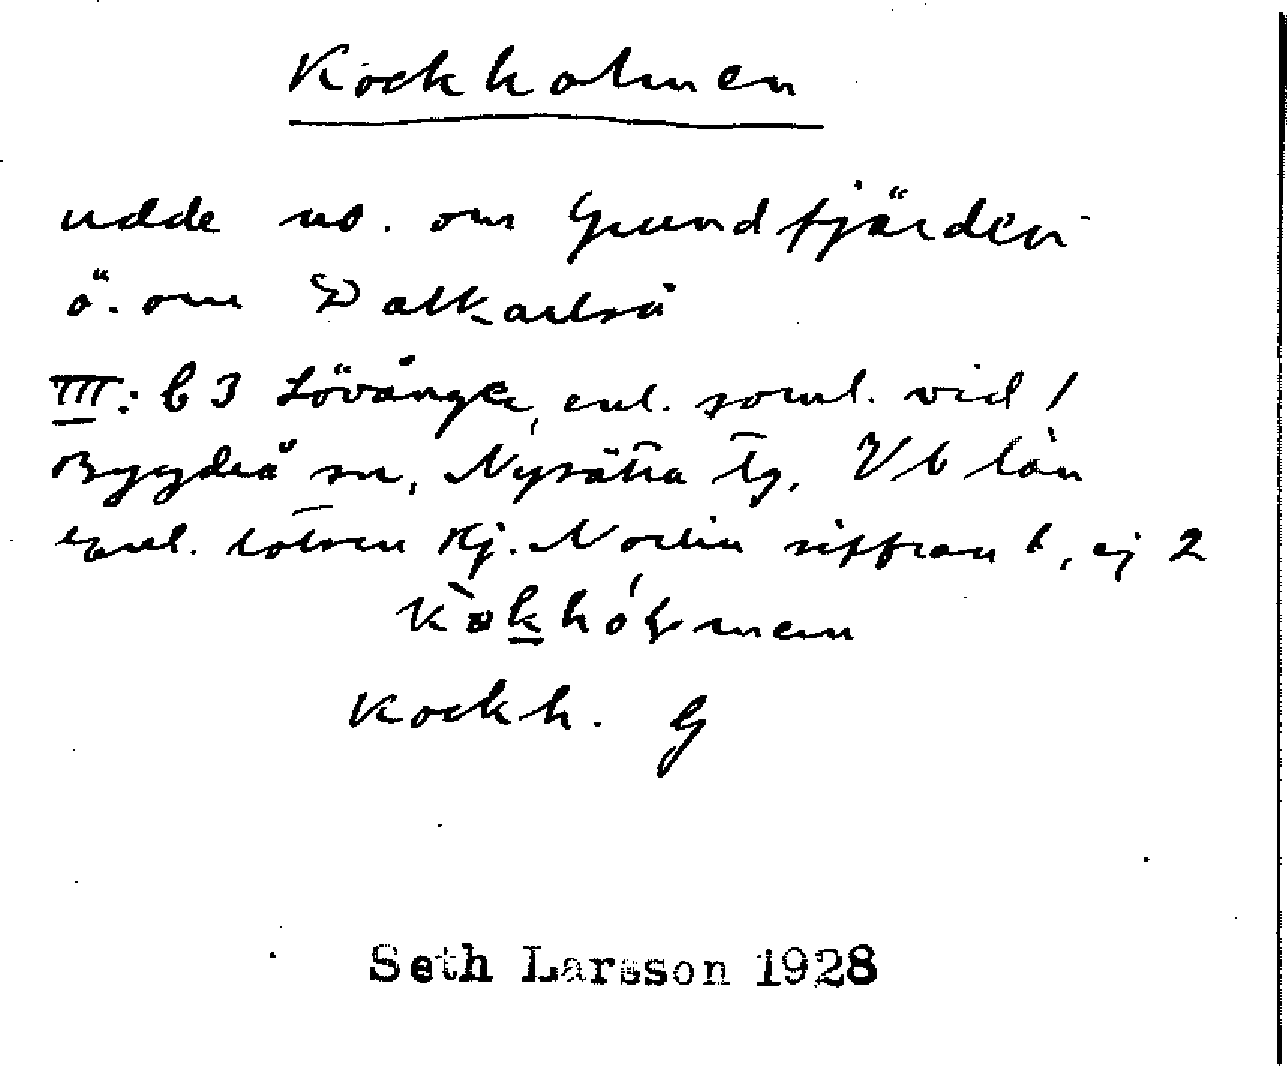 Kockholmen
udde no. om Grundfjärden
ö. om Dalkarlså
III: b 3 Lövånger, enl. soml. vid 1
Bygdeå sn, Nysätra tg, Vb län
enl. lotsen Hj. Norlin siffran 1, ej 2
Kockh. G
Seth Larsson 1928